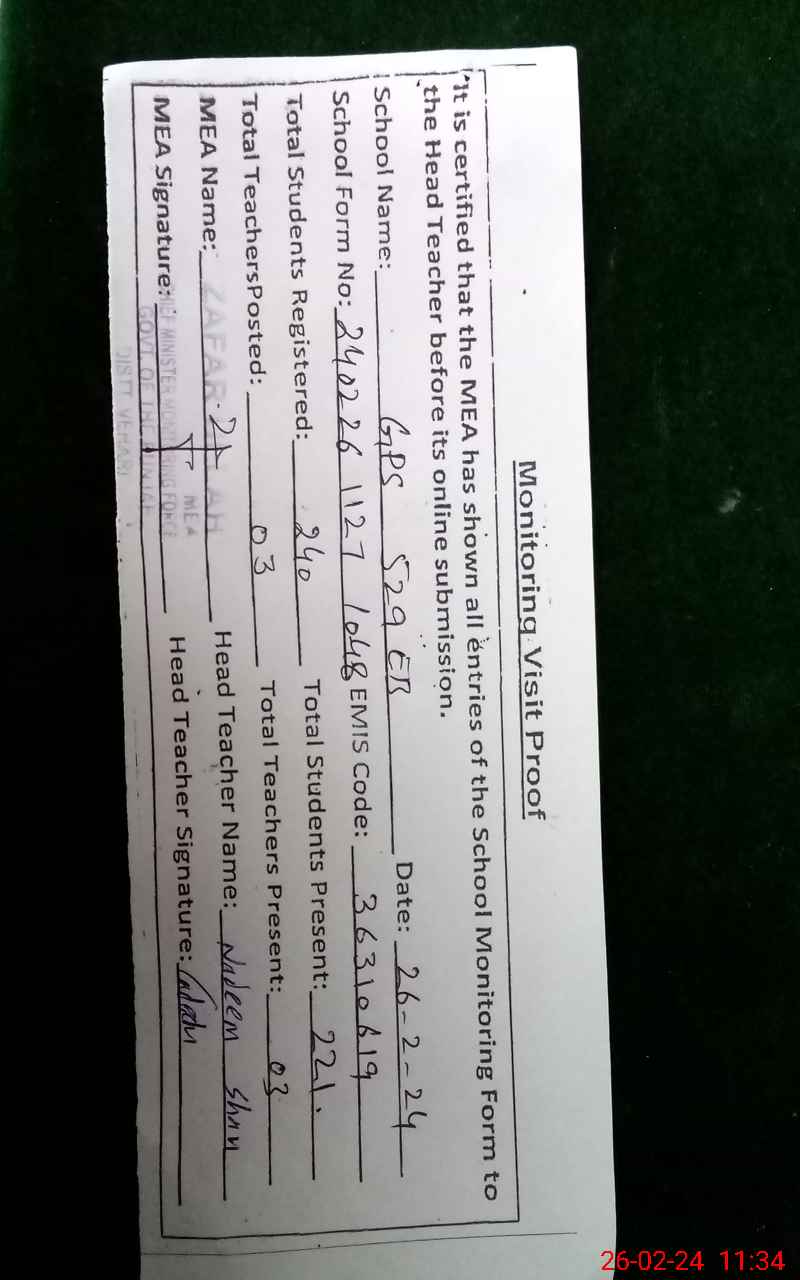 Monitoring Visit Proof
"It is certified that the MEA has shown all entries of the School Monitoring Form to
the Head Teacher before its online submission.
School Name: GPS 529 EB Date: 26-2-24
School Form No: 240226 1127 1048 EMIS Code: 36310619
Total Students Registered: 240 Total Students Present: 221.
Total TeachersPosted: 03 Total Teachers Present: 03
MEA Name: ZAFAR Head Teacher Name: Nadeem
MEA Signature: Head Teacher Signature:
MEA
CHIEF MINISTER MONITORING FORCE
GOVT. OF THE PUNJAB
DISTT. VEHARI
26-02-24 11:34